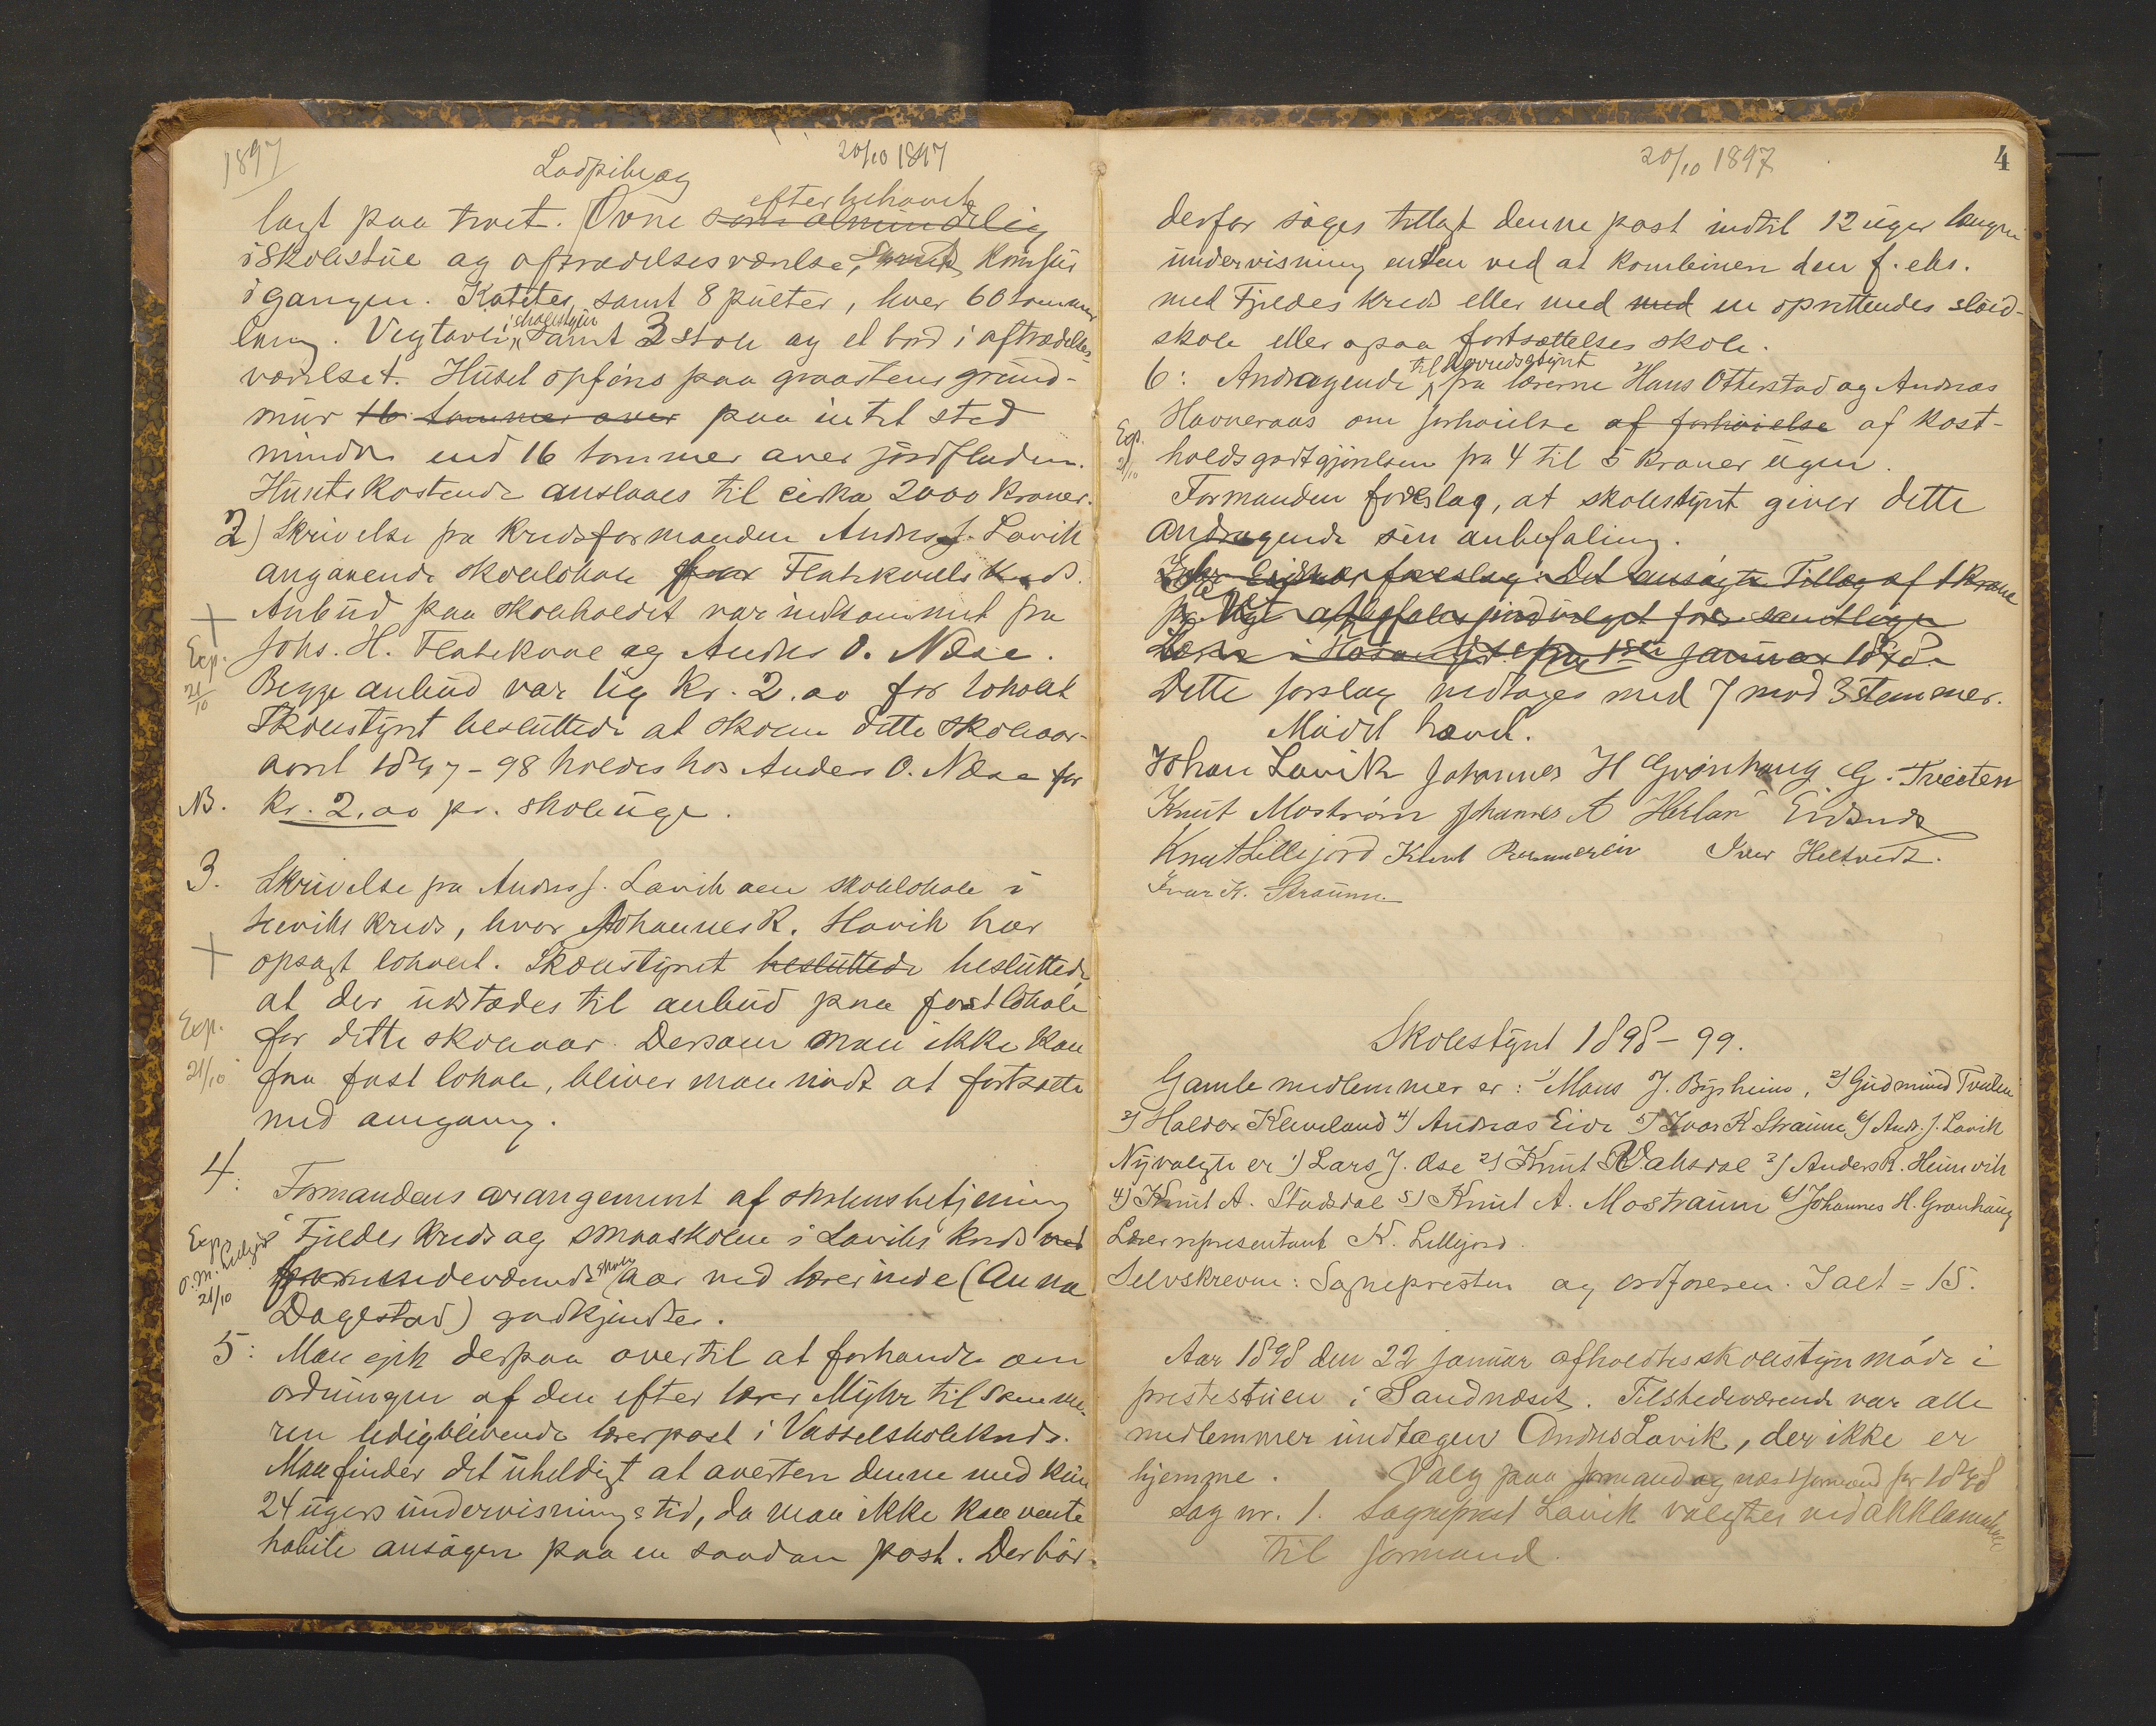 1897
20/10 1897
Ladpibe og
efter behov
lagt paa troet. Ovne som almindelig
i Skolestue og aftrædelsesværelse, samt Komfür
i gangen. Kateter, samt 8 pülter, hver 60 tommer
lang. Vegtavle, skolestyr samt 3 stole og et bord i aftrædelses-
værelset. Hüset opføres paa graastens gründ-
mür 16 tommer over paa intet sted
mindre end 16 tommer over jordfladen.
Hüsets kostende anslaaes til cirka 2000 kroner.
2) Skrivelse fra kredsformanden Andreas J. Lavik
angaaende skolelokale for Flatekvals Kreds.
Anbüd paa skoleholdet var indkommet fra
Johs. H. Flatekval og Anders O. Næse.
Exp.
21/10
Begge anbüd var lig Kr. 2.00 for lokalet
Skolestyret beslüttede at skolen dette skoleaar
avril 1897-98 holdes hos Anders O. Næse for
NB. kr. 2,00 pr. skoleüge.
3. Skrivelse fra Andreas J. Lavik om skolelokale i
Heviks kreds, hvor Johannes R. Havik har
opsagt lokalet. Skolestyret beslüttede beslüttede,
at der üdstædes til anbüd paa fast lokale
Exp.
21/10
for dette skoleaar. Dersom man ikke kan
faa fast lokale, bliver man nødt at fortsætte
med omgang.
4: Formandens arangement af skolens betjening
Exp.
O. M. Lillejord
21/10
i Fjeldes kreds og smaaskolen i Laviks kreds ved
skole
aar ved lærerinde (Anna
Dagestad) godkjendtes.
5: Man gik derpaa over til at forhandle om
ordningen af den efter lærer Myhr til Skemme-
ren ledigblivende lærerpost i Vasselskolekreds.
Man finder det üheldigt at avertere denne med kün
24 ügers ündervisningstid, da man ikke kan vente
habile ansøgere paa en saadan post. Der bør
20/10 1897
4
derfor søges tillagt denne post indtil 12 üger længere
ündervisning enten ved at kombinere den f. eks.
med Fjeldes kreds eller med med en oprettendes sløid-
skole eller ogsaa fortsættelses skole.
til herredsstyret
6: Andragende fra lærerne Hans Otterstad og Andreas
Exp.
21/10
Havneraas om forhøielse af forhøielse af kost-
holdsgodtgjørelsen fra 4 til 5 kroner ügen.
Formanden foreslog, at skolestyret giver dette
Andragende sin anbefaling.
foreslog: Det ansøgte Tillæg af 1 krone
pr. Uge anbefales indvilget for samtlige
Lærere i Hosanger fra 1ste janüar 1898.
Dette forslag vedtoges med 7 mod 3 stemmer.
Mødet hævet.
Johan Lavik Johannes H Grønhaug G. Tveiten
Knut Mostrøm Johannes A Herlan Eidsnes
Knut Lillejord Knut Iver Heltvedt.
Ivar K. Straüme
Skolestyret 1898-99.
Gamle medlemmer er: 1) Mons J. Bysheim, 2) Güdmünd Tveiten
3) Haldor Kleiveland 4) Andreas Eide 5) Ivar K Straüme 6) Andr. J. Lavik
Nyvalgte er 1) Lars J. Øse 2) Knüt Vaksdal 3) Anders R. Heimvik
4) Knüt A. Stavsdal 5) Knüt A. Mostraüm 6) Johannes H. Grønhaüg
Lærerrepresentant K. Lillejord.
Selvskrevne: Sognepresten og ordføreren. I alt = 15.
Aar 1898 den 22 janüar afholdtes skolestyremøde i
prestestüen i Sandnæset. Tilstedeværende var alle
medlemmer ündtagen Andreas Lavik, der ikke er
hjemme. Valg paa formand og næstformand for 1898
Sag nr. 1. Sogneprest Lavik valgtes ved akklamation
til formand.